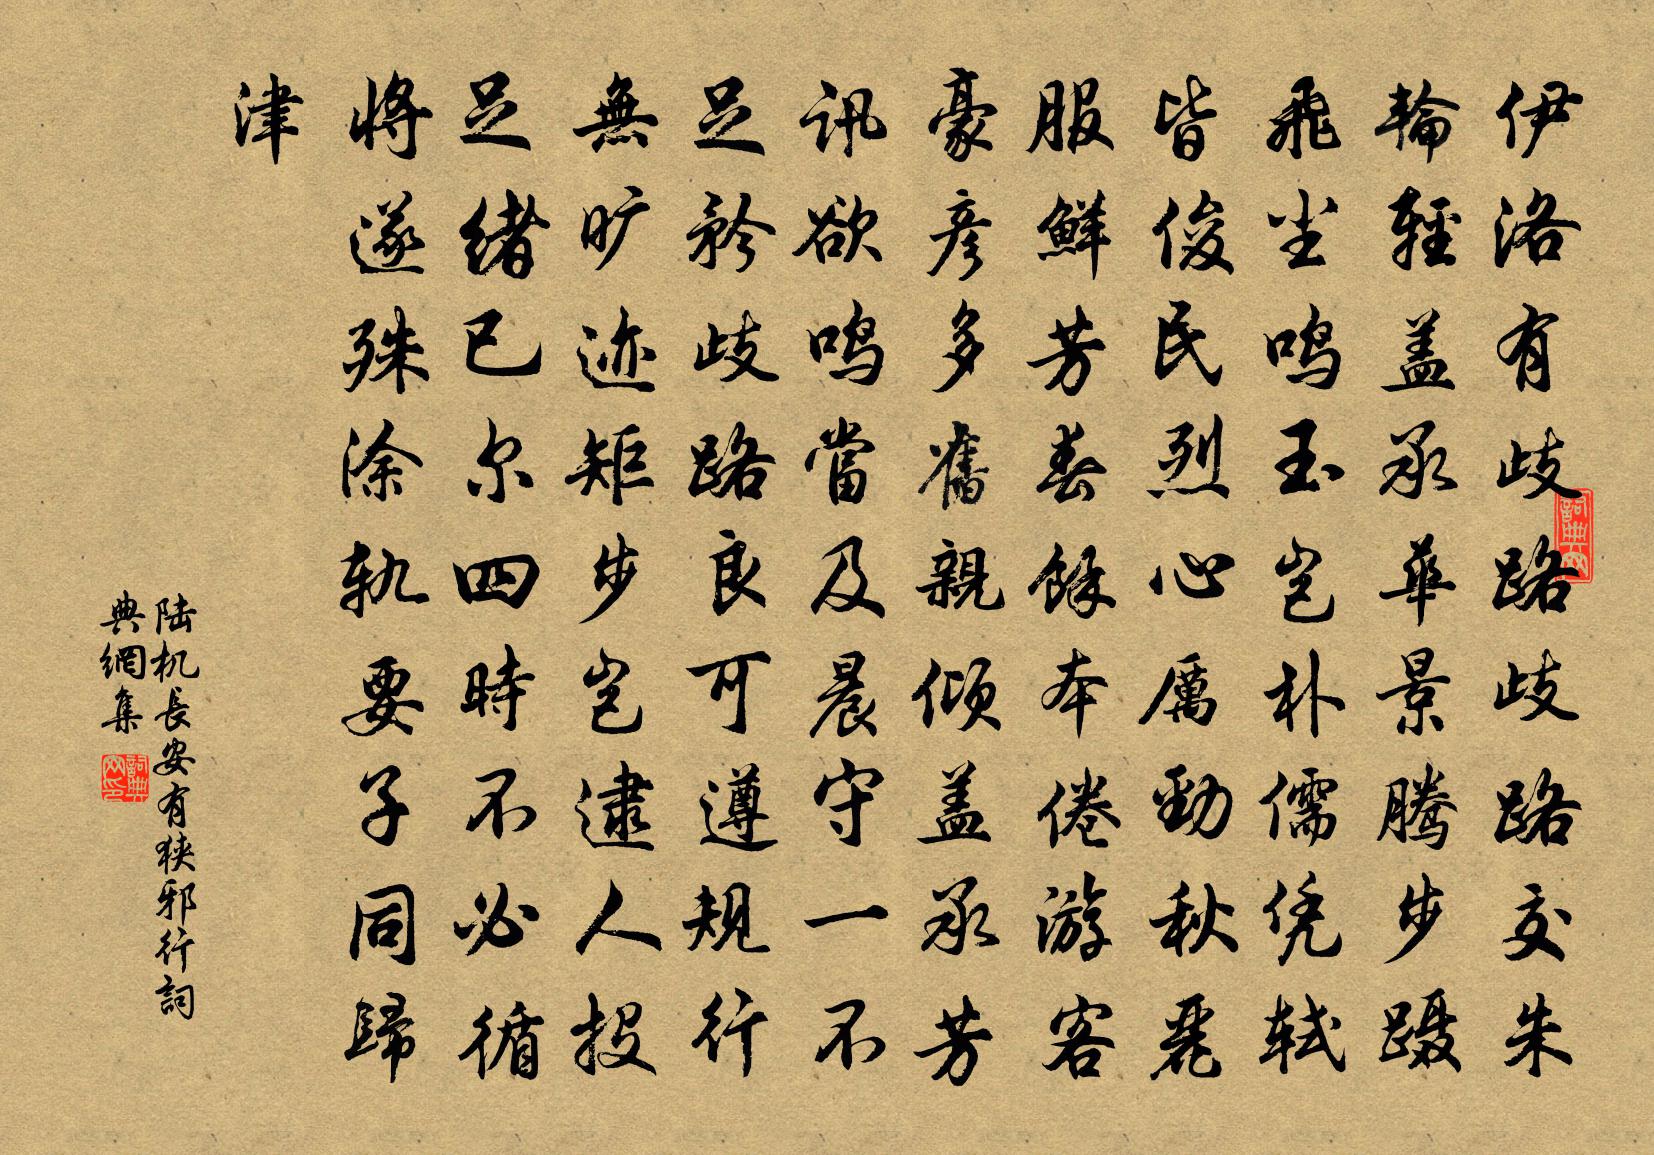 伊洛有歧路歧路交朱
輪輕盖承華景騰步蹑
飛尘鸣玉岂朴儒凭軾
皆俊民烈心厲勁秋麗
服鮮芳春餘本倦游客
豪彦多舊親傾盖承芳
訊欲鸣當及晨守一不
足矜歧路良可遵規行
無旷迹矩步岂逮人投
足緒已尔四時不必循
将遂殊涂軌要子同歸
津
陆机長安有狹邪行詞
典網集
詞典网
詞典网印